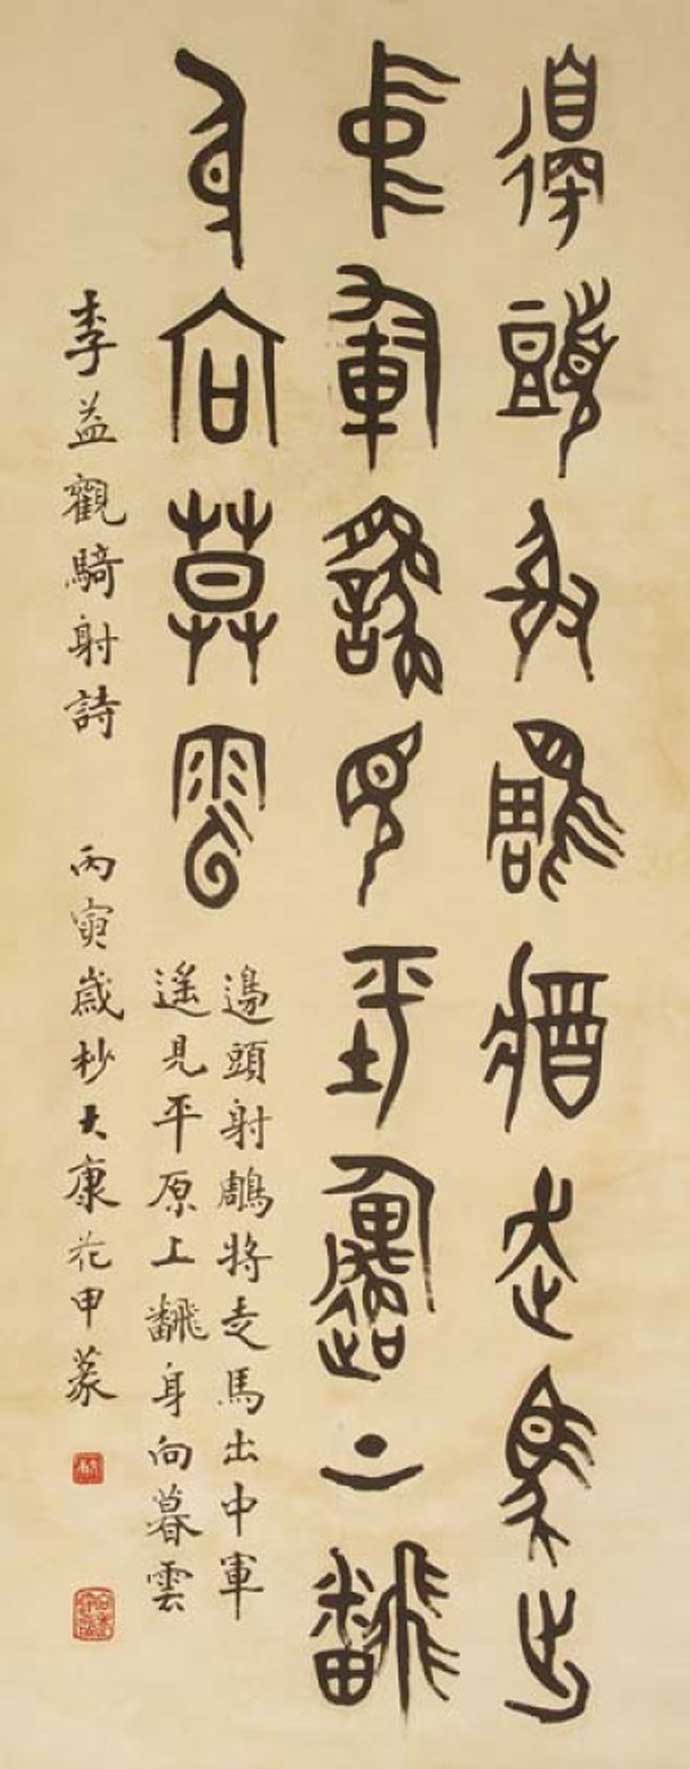 邊頭射鵰將走馬出
中軍遙見平原上飜
身向暮雲
邊頭射鵰將走馬出中軍
遙見平原上飜身向暮雲
李益觀騎射詩 丙寅歲杪大康花甲篆